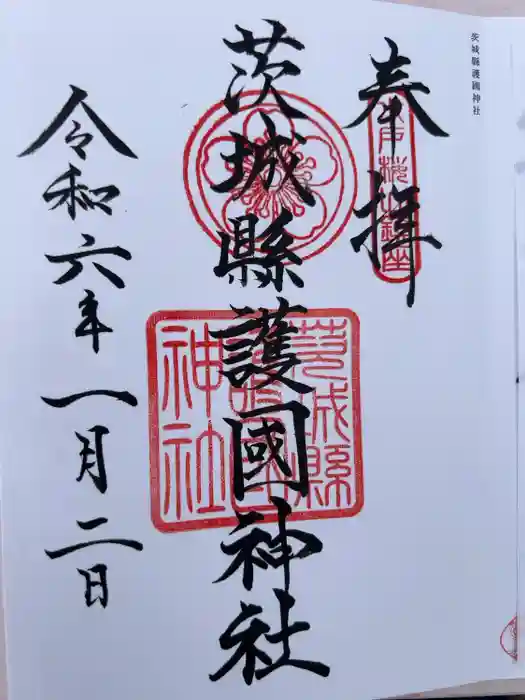 茨城縣護國神社
奉拝
水戸桜山鎮座
茨城縣護國神社
茨城縣護國神社
令和六年一月二日